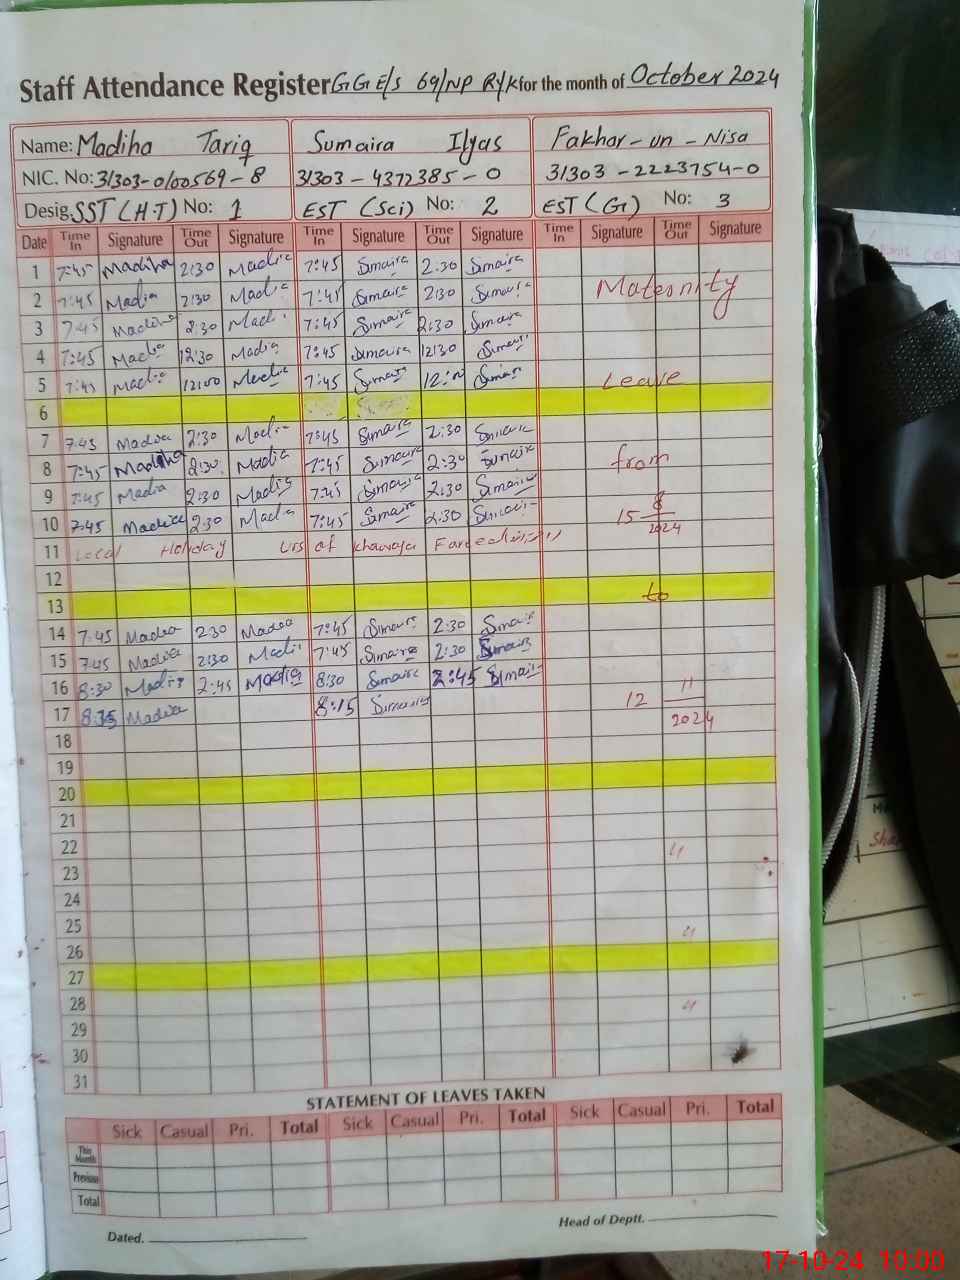 Staff Attendance Register GGE/S 69/NP R/K for the month of October 2024
Name: Madiha Tariq Sumaira Ilyas Fakhar-un-Nisa
NIC. No: 31303-0100569-8 31303-4372385-0 31303-2223754-0
Desig. SST (H.T) No: 1 EST (Sci) No: 2 EST (G) No: 3
Date Time In Signature Time Out Signature Time In Signature Time Out Signature Time In Signature Time Out Signature
1 7:45 Madiha 2:30 Madia 7:45 Simaira 2:30 Simaira
2 7:45 Madia 2:30 Madia 7:45 Simaira 2:30 Simaira Maternity
3 7:45 Madiha 2:30 Madi 7:45 Simaira 2:30 Simaira
4 7:45 Madia 12:30 Madia 7:45 Simaira 12:30 Simair
5 7:45 Madia 12:00 Madia 7:45 Simair 12:00 Simair Leave
6
7 7:45 Madiha 2:30 Madia 7:45 Simaira 2:30 Simaira
8 7:45 Madiha 2:30 Madia 7:45 Simaira 2:30 Simaira from
9 7:45 Madia 2:30 Madia 7:45 Simaira 2:30 Simaira
10 7:45 Madiha 2:30 Madia 7:45 Simaira 2:30 Simaira 15 8/2024
11 Local Holiday Urs of Khawaja
12
13 to
14 7:45 Madiha 2:30 Madiha 7:45 Simaira 2:30 Simair
15 7:45 Madiha 2:30 Madi 7:45 Simaira 2:30 Simaira
16 8:30 Madia 2:45 Madia 8:30 Simaira 2:45 Simair
17 8:35 Madiha 8:15 Simaira 12 11/2024
18
19
20
21
22 "
23
24
25 "
26
27
28 "
29
30
31
STATEMENT OF LEAVES TAKEN
Sick Casual Pri. Total Sick Casual Pri. Total Sick Casual Pri. Total
This Month
Previous
Total
Dated. Head of Deptt.
17-10-24 10:00